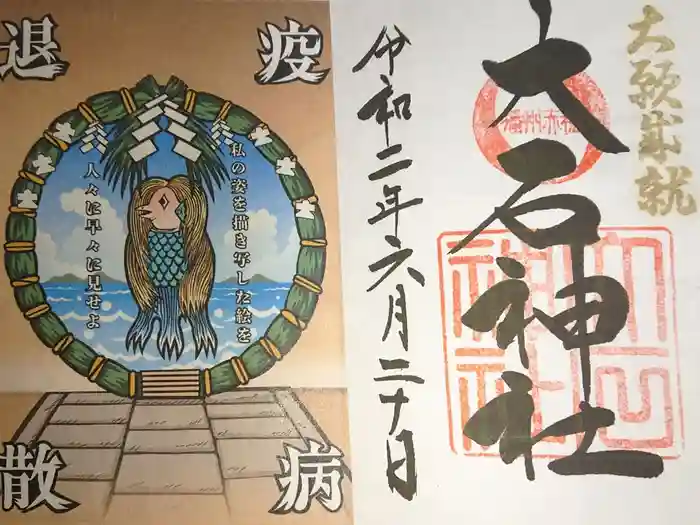 大願成就
大石神社
播州赤穂
大石神社
令和二年六月二十日
疫病
退散
私の姿を描き写した絵を
人々に早々に見せよ